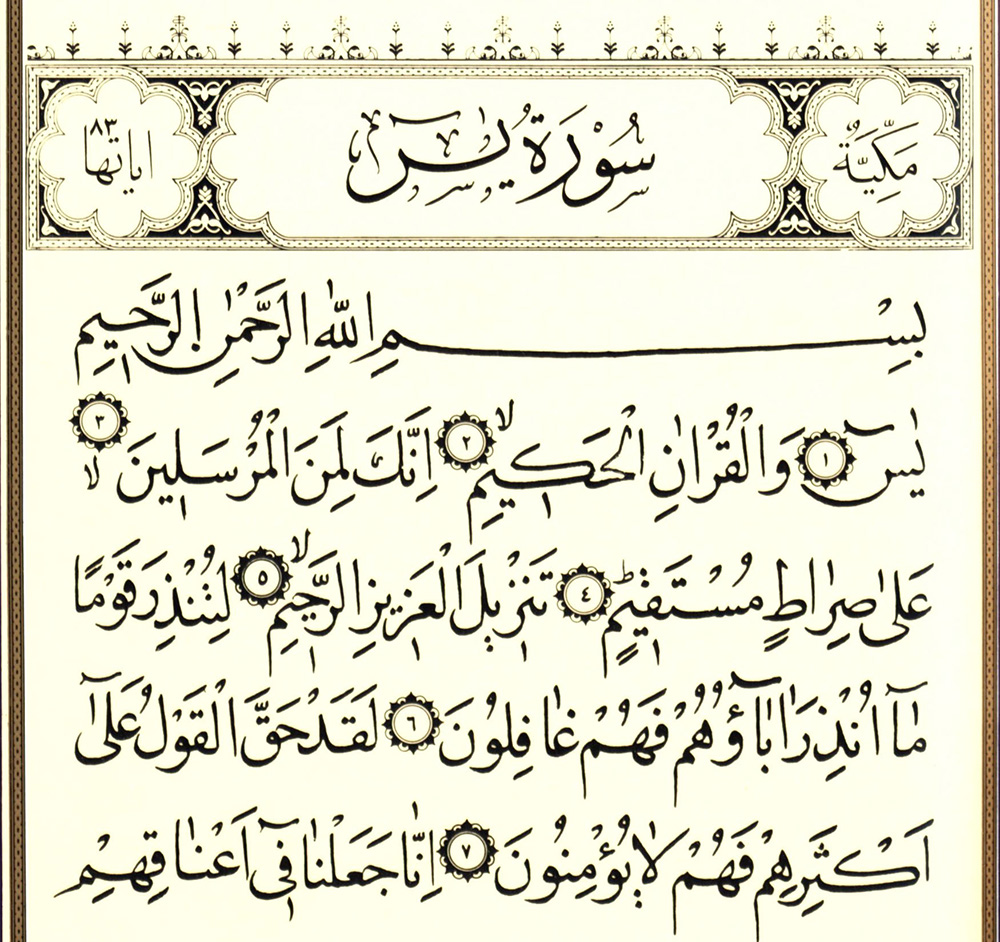 مَكِّيَّةٌ
سُورَةُ يٰسٓ
اياتها ٨٣
بِسْمِ اللّٰهِ الرَّحْمٰنِ الرَّحِيمِ
يٰسٓ ١ وَالْقُرْاٰنِ الْحَكِيمِ ۙ ٢ اِنَّكَ لَمِنَ الْمُرْسَلِينَ ۙ ٣
عَلٰى صِرَاطٍ مُسْتَقِيمٍ ؕ ٤ تَنْزِيلَ الْعَزِيزِ الرَّحِيمِ ۙ ٥ لِتُنْذِرَ قَوْمًا
مَٓا اُنْذِرَ اٰبَٓاؤُ۬هُمْ فَهُمْ غَافِلُونَ ٦ لَقَدْ حَقَّ الْقَوْلُ عَلٰٓى
اَكْثَرِهِمْ فَهُمْ لَا يُؤْمِنُونَ ٧ اِنَّا جَعَلْنَا ف۪ٓى اَعْنَاقِهِمْ